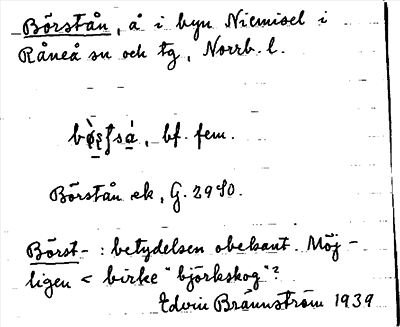 Börstån, å i byn Niemisel i
Råneå sn och tg, Norrb. l.
bf. fem.
Börstån ek, G. 2940.
Börst- : betydelsen obekant. Möj-
ligen < birke "björkskog"?
Edvin Brännström 1939